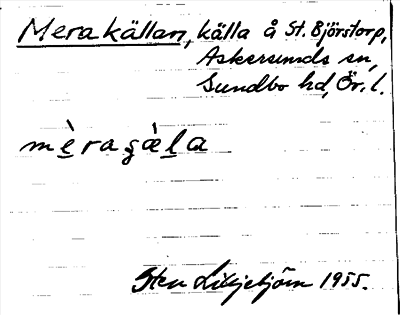 Merakällan, källa å St. Björstorp,
Askersunds sn,
Sundbo hd, Ör. l.
mèraşæ̀la
Sten Liljebjörn 1955.